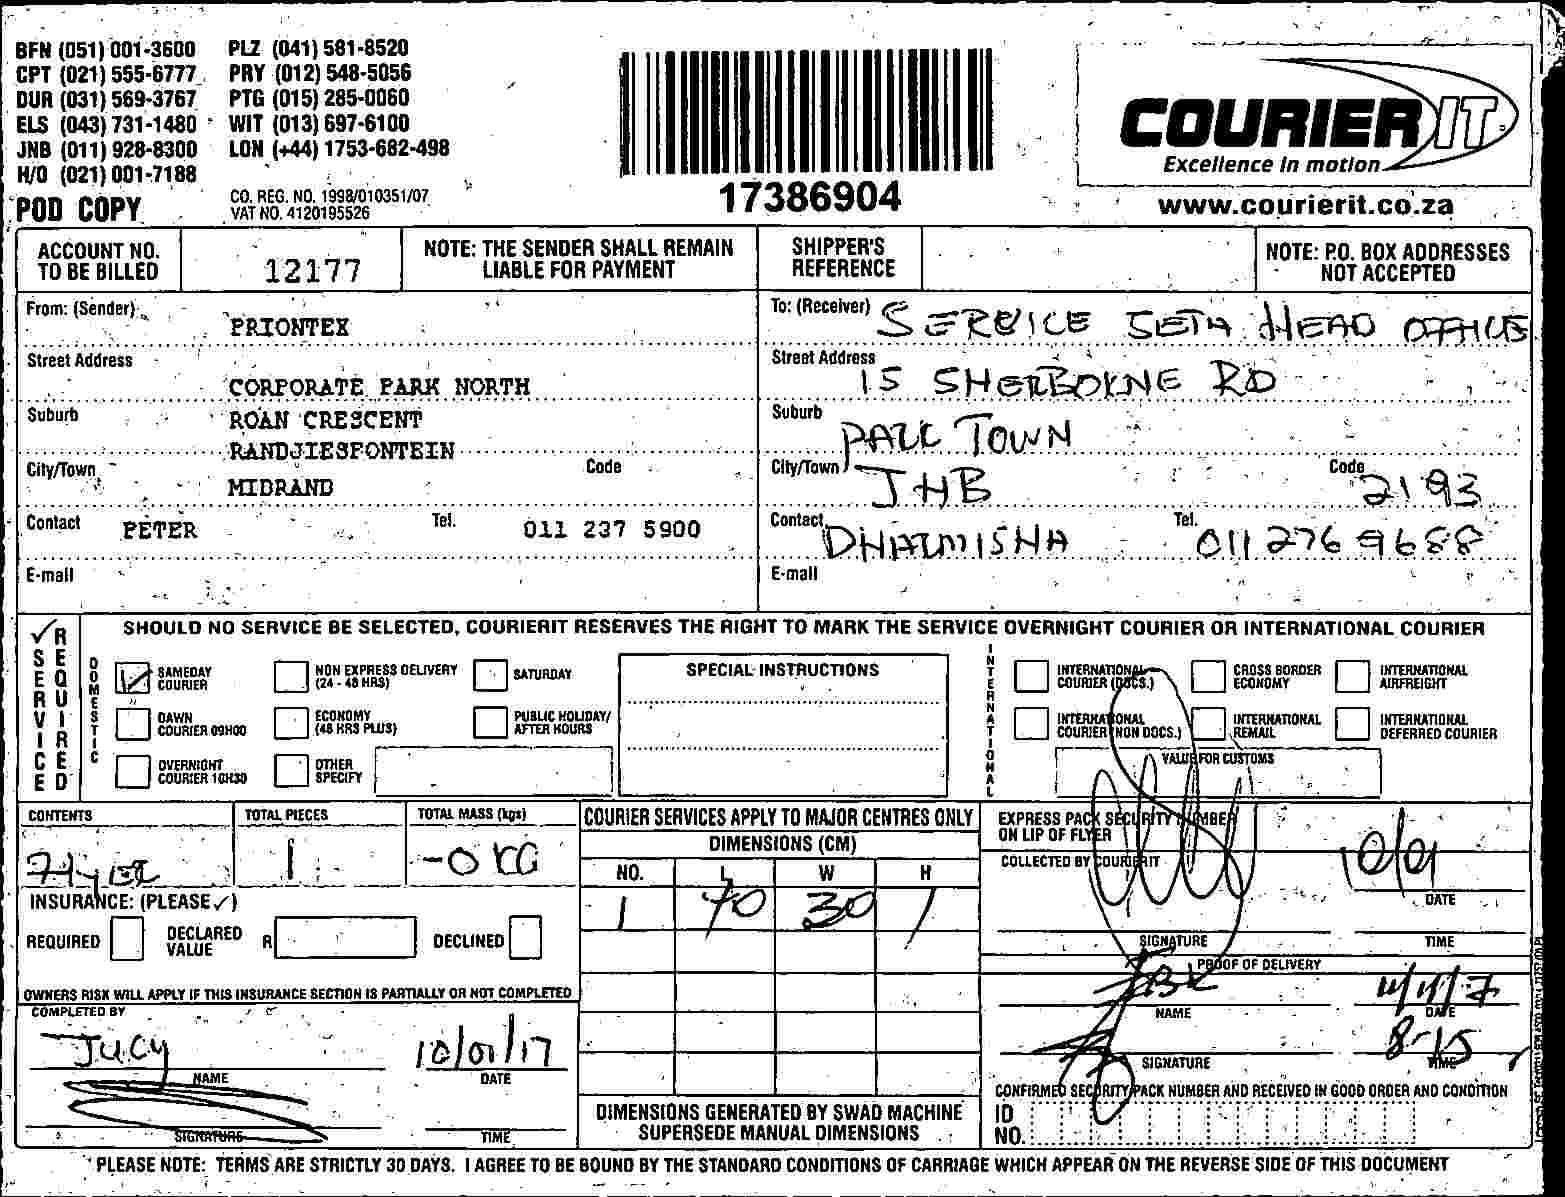 BFN (051) 001-3600 PLZ (041) 581-8520
CPT (021) 555-6777 PRY (012) 548-5056
DUR (031) 569-3767 PTG (015) 285-0060
ELS (043) 731-1480 WIT (013) 697-6100
JNB (011) 928-8300 LON (+44) 1753-682-498
H/O (021) 001-7188
POD COPY
CO. REG. NO. 1998/010351/07
VAT NO. 4120195526
17386904
COURIER IT
Excellence in motion
www.courierit.co.za
ACCOUNT NO. TO BE BILLED 12177
NOTE: THE SENDER SHALL REMAIN LIABLE FOR PAYMENT
SHIPPER'S REFERENCE
NOTE: P.O. BOX ADDRESSES NOT ACCEPTED
From: (Sender) PRIONTEX
Street Address
CORPORATE PARK NORTH
Suburb ROAN CRESCENT
RANDJIESFONTEIN
City/Town MIDRAND Code
Contact PETER Tel. 011 237 5900
E-mail
To: (Receiver) SERVICE SETA HEAD OFFICE
Street Address 15 SHERBORNE RD
Suburb PARK TOWN
City/Town JHB Code 2193
Contact Tel. 011 276 9688
E-mail
SERVICE REQUIRED
SHOULD NO SERVICE BE SELECTED, COURIERIT RESERVES THE RIGHT TO MARK THE SERVICE OVERNIGHT COURIER OR INTERNATIONAL COURIER
DOMESTIC
SAMEDAY COURIER
NON EXPRESS DELIVERY (24 - 48 HRS)
SATURDAY
DAWN COURIER 09H00
ECONOMY (48 HRS PLUS)
PUBLIC HOLIDAY/ AFTER HOURS
OVERNIGHT COURIER 10H30
OTHER SPECIFY
SPECIAL INSTRUCTIONS
INTERNATIONAL
INTERNATIONAL COURIER (DOCS.)
CROSS BORDER ECONOMY
INTERNATIONAL AIRFREIGHT
INTERNATIONAL COURIER (NON DOCS.)
INTERNATIONAL REMAIL
INTERNATIONAL DEFERRED COURIER
VALUE FOR CUSTOMS
CONTENTS
TOTAL PIECES 1
TOTAL MASS (kgs)
INSURANCE: (PLEASE ✓)
REQUIRED DECLARED VALUE R DECLINED
OWNERS RISK WILL APPLY IF THIS INSURANCE SECTION IS PARTIALLY OR NOT COMPLETED
COMPLETED BY
10/01/17
NAME DATE
SIGNATURE TIME
COURIER SERVICES APPLY TO MAJOR CENTRES ONLY
DIMENSIONS (CM)
NO. L W H
1 40 30 1
DIMENSIONS GENERATED BY SWAD MACHINE SUPERSEDE MANUAL DIMENSIONS
EXPRESS PACK SECURITY NUMBER ON LIP OF FLYER
COLLECTED BY COURIERIT
10/01
DATE
SIGNATURE TIME
PROOF OF DELIVERY
NAME DATE
8-15
SIGNATURE TIME
CONFIRMED SECURITY PACK NUMBER AND RECEIVED IN GOOD ORDER AND CONDITION
ID NO.
PLEASE NOTE: TERMS ARE STRICTLY 30 DAYS. I AGREE TO BE BOUND BY THE STANDARD CONDITIONS OF CARRIAGE WHICH APPEAR ON THE REVERSE SIDE OF THIS DOCUMENT